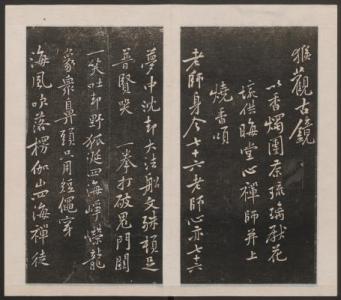 猴觀古鏡
以香燭團茶琉璃獻花
琖供晦堂心禪師并上
燒香頌
老師身今七十六老師心亦七十六
夢中沈却大法船文殊頓足
普賢哭一拳打破鬼門關
一笑吐却野狐涎四海崢嶸龍
象眾鼻頭只用短繩穿
海風吹落楞伽山四海禪徒